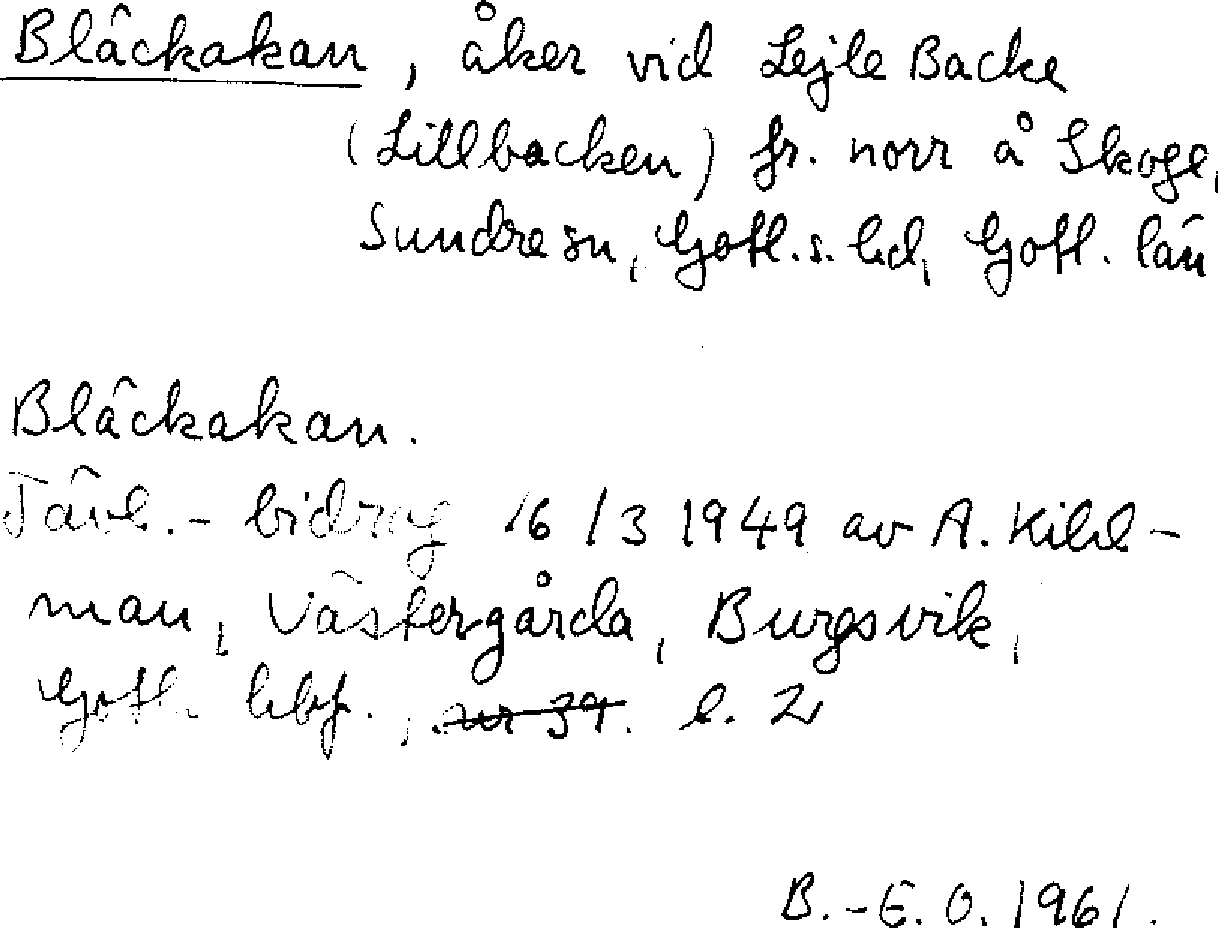 Bläckakan, åker vid Lejle Backe
(Lillbacken) fr. norr å Skoge,
Sundre sn, Gotl. s. hd, Gotl. län
Bläckakan.
Tävl.- bidrag 16/3 1949 av A. Kihl-
man, Västergårda, Burgsvik,
Gotl. hbf., nr 39. l. 2
B.-E. O. 1961.